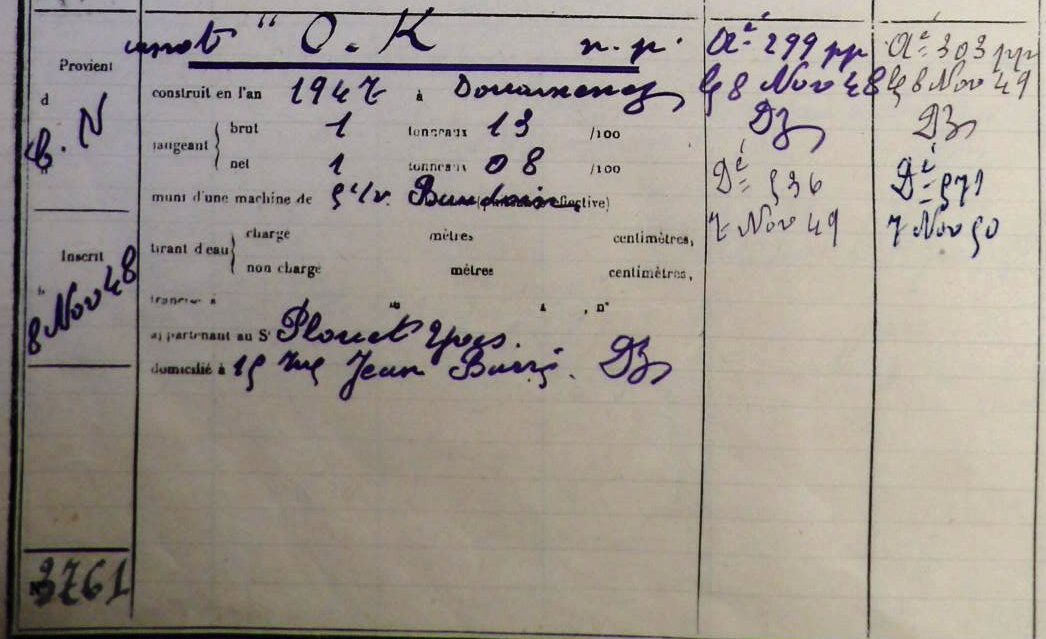 Provient
d
C. N
Inscrit
le
8 Nov 48
N° 3761
canot " O. K n. p.
construit en l'an 1947 à Douarnenez
jaugeant { brut 1 tonneaux 13 /100
net 1 tonneaux 08 /100
muni d'une machine de 5 c/v. Baudoin (effective)
tirant d'eau { charge mètres centimètres,
non charge mètres centimètres,
à , n°
appartenant au Sr Plouet Yves.
domicilié à 15 rue Jean Barré. DZ
Aé 299 pp
le 8 Nov 48
DZ
Dé 536
7 Nov 49
Aé 303 pp
le 8 Nov 49
DZ
Dé 571
7 Nov 50